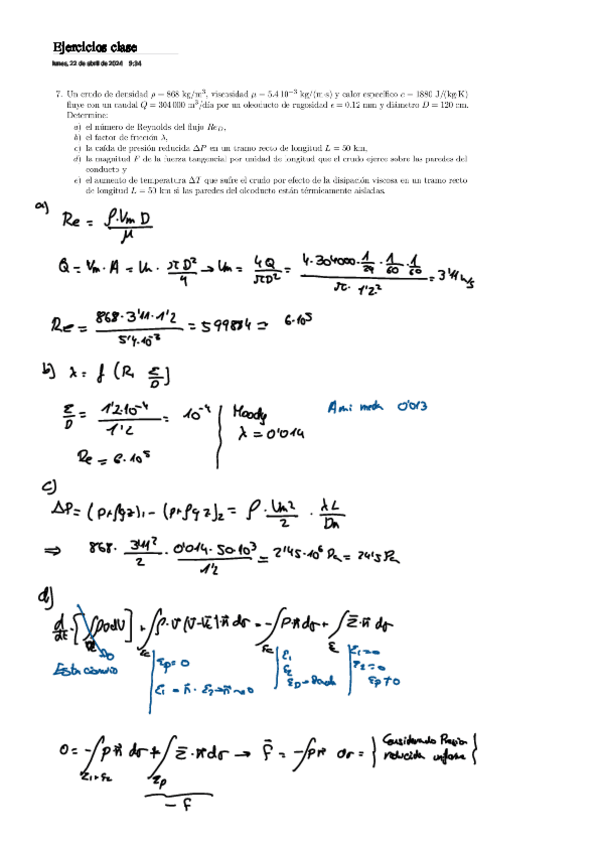 Ejercicios clase
lunes, 22 de abril de 2024 9:34
7. Un crudo de densidad ρ = 868 kg/m³, viscosidad μ = 5.4 10⁻³ kg/(m·s) y calor específico c = 1880 J/(kg·K)
fluye con un caudal Q = 304 000 m³/día por un oleoducto de rugosidad ε = 0.12 mm y diámetro D = 120 cm.
Determine:
a) el número de Reynolds del flujo Re_D,
b) el factor de fricción λ,
c) la caída de presión reducida ΔP en un tramo recto de longitud L = 50 km,
d) la magnitud F de la fuerza tangencial por unidad de longitud que el crudo ejerce sobre las paredes del
conducto y
e) el aumento de temperatura ΔT que sufre el crudo por efecto de la disipación viscosa en un tramo recto
de longitud L = 50 km si las paredes del oleoducto están térmicamente aisladas.
a)
Re = ρ·Vm D / μ
Q = Vm · A = Um · πD²/4 → Um = 4Q/πD² = 4·304000·1/24·1/60·1/60 / π·1'2² = 3'11 m/s
Re = 868·3'11·1'2 / 5'4·10⁻³ = 599884 ≈ 6·10⁵
b) λ = f (R, ε/D)
ε/D = 1'2·10⁻⁴ / 1'2 = 10⁻⁴ Moody A mi me da 0'013
λ = 0'014
Re = 6·10⁵
c)
ΔP = (p+ρgz)₁ - (p+ρgz)₂ = ρ · Um²/2 · λL/Dh
⇒ 868 · 3'11²/2 · 0'014·50·10³/1'2 = 2'45·10⁶ Pa = 24'5 Pa
d)
Estacionario
Σp = 0
Σ₁ = 0
Σ₂ = 0
Σp ≠ 0
Considerando Presión
reducida uniforme
- F